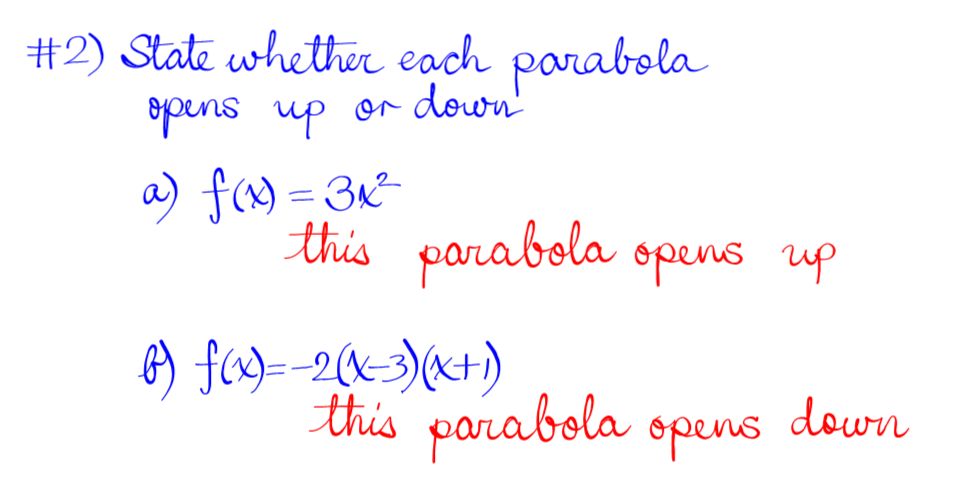 #2) State whether each parabola
opens up or down
a) f(x) = 3x²
this parabola opens up
b) f(x)=-2(x-3)(x+1)
this parabola opens down